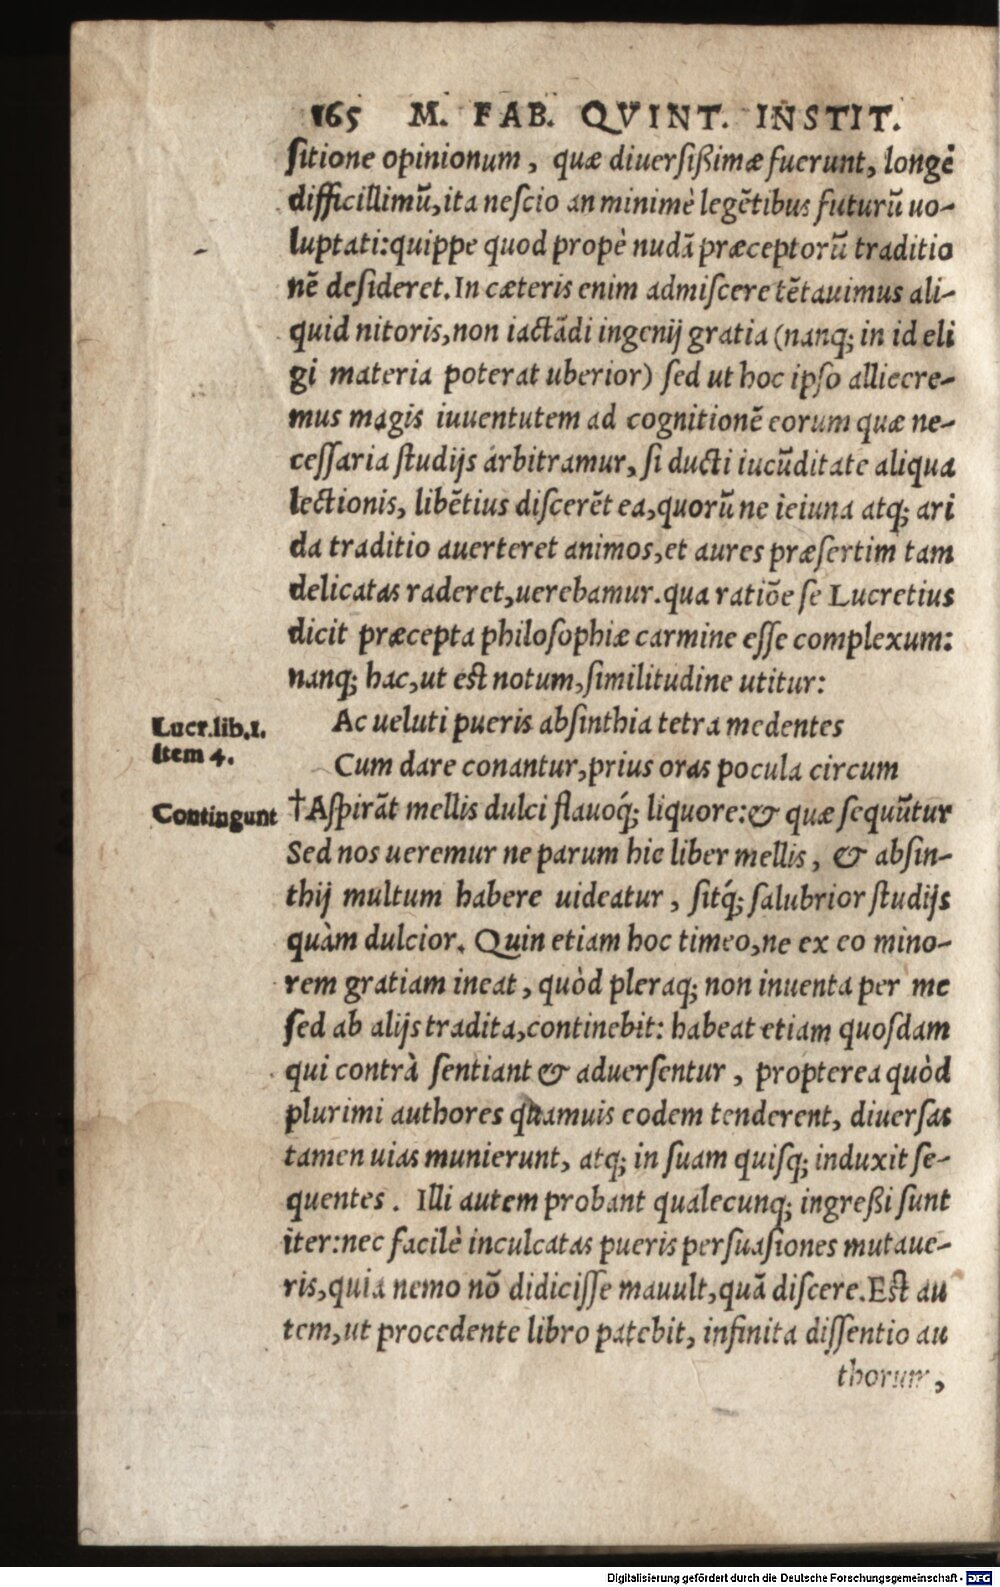 165 M. FAB. QVINT. INSTIT.
ſitione opinionum, quæ diuerſißimæ fuerunt, longè
difficillimũ, ita neſcio an minimè legẽtibus futurũ uo-
luptati: quippe quod propè nudã præceptorũ traditio
nẽ deſideret. In cæteris enim admiſcere tẽtauimus ali-
quid nitoris, non iactãdi ingenij gratia (nanq; in id eli
gi materia poterat uberior) ſed ut hoc ipſo alliecre-
mus magis iuuentutem ad cognitionẽ eorum quæ ne-
ceſſaria ſtudijs arbitramur, ſi ducti iucũditate aliqua
lectionis, libẽtius diſcerẽt ea, quorũ ne ieiuna atq; ari
da traditio auerteret animos, et aures præſertim tam
delicatas raderet, uerebamur. qua ratiõe ſe Lucretius
dicit præcepta philoſophiæ carmine eſſe complexum:
nanq; hac, ut eſt notum, ſimilitudine utitur:
Lucr. lib. 1.
Item 4.
Ac ueluti pueris abſinthia tetra medentes
Cum dare conantur, prius oras pocula circum
Contingunt
†Aſpirãt mellis dulci flauoq́; liquore: & quæ ſequũtur
Sed nos ueremur ne parum hic liber mellis, & abſin-
thij multum habere uideatur, ſitq́; ſalubrior ſtudijs
quàm dulcior. Quin etiam hoc timeo, ne ex eo mino-
rem gratiam ineat, quòd pleraq; non inuenta per me
ſed ab alijs tradita, continebit: habeat etiam quoſdam
qui contrà ſentiant & aduerſentur, propterea quòd
plurimi authores quamuis eodem tenderent, diuerſas
tamen uias munierunt, atq; in ſuam quiſq; induxit ſe-
quentes. Illi autem probant qualecunq; ingreßi ſunt
iter: nec facilè inculcatas pueris perſuaſiones mutaue-
ris, quia nemo nõ didiciſſe mauult, quã diſcere. Eſt au
tem, ut procedente libro patebit, infinita diſſentio au
thorum,
Digitalisierung gefördert durch die Deutsche Forschungsgemeinschaft - DFG